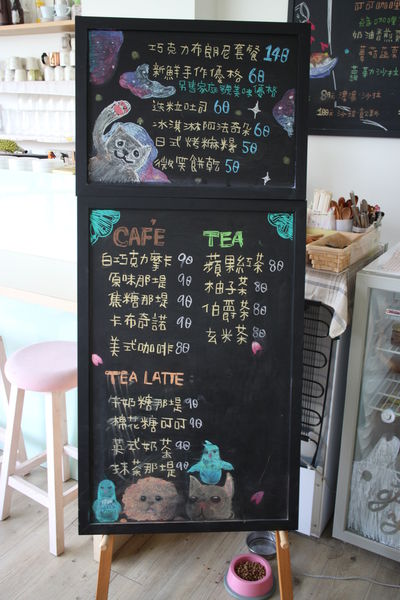 巧克力布朗尼套餐 140
新鮮手作優格 60
另售家庭號美味優格
鐵粒吐司 60
冰淇淋阿法奇朵 60
日式烤麻糬 50
微笑餅乾 50
CAFE
白巧克力摩卡 90
原味那堤 90
焦糖那堤 90
卡布奇諾 90
美式咖啡 80
TEA
蘋果紅茶 80
柚子茶 80
伯爵茶 80
玄米茶 80
TEA LATTE
牛奶糖那堤 90
棉花糖可可 90
英式奶茶 90
抹茶那堤 90